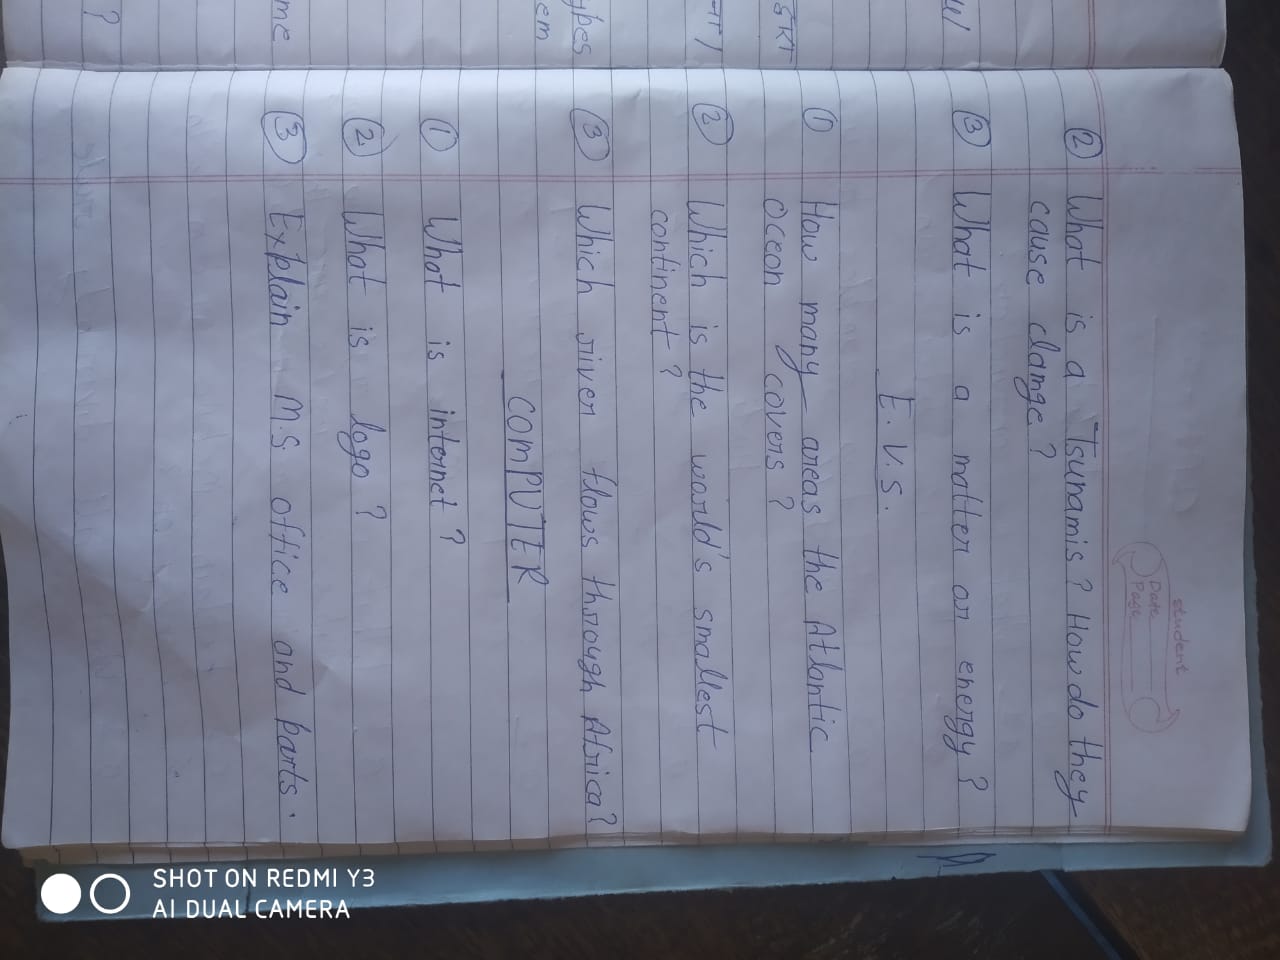 student
Date
Page
② What is a Tsunamis? How do they
cause clamge?
③ What is a matter or energy?
E.V.S.
① How many areas the Atlantic
Oceon covers?
② Which is the world's smallest
continent?
③ Which river flows through Africa?
COMPUTER
① What is internet?
② What is logo?
③ Explain M.S. office and parts.
ypes
em
me
?
SHOT ON REDMI Y3
AI DUAL CAMERA